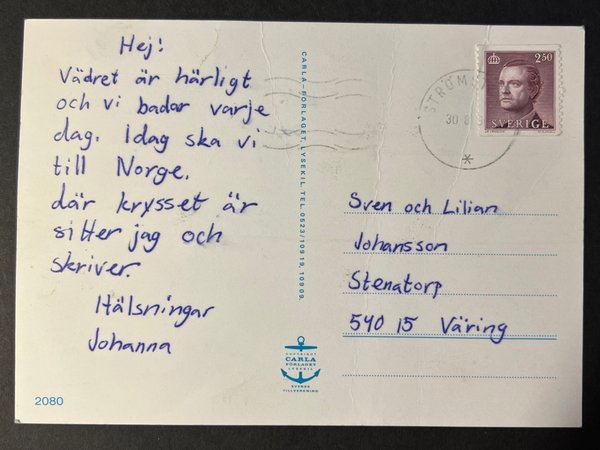 Hej!
Vädret är härligt
och vi badar varje
dag. Idag ska vi
till Norge.
där krysset är
sitter jag och
skriver.
Hälsningar
Johanna
2080
CARLA-FÖRLAGET, LYSEKIL TEL. 0523/109 19, 109 09.
COPYRIGHT
CARLA
FÖRLAGET
LYSEKIL
SVENSK
TILLVERKNING
30 8
2.50
SVERIGE
Sven och Lilian
Johansson
Stenatorp
540 15 Väring